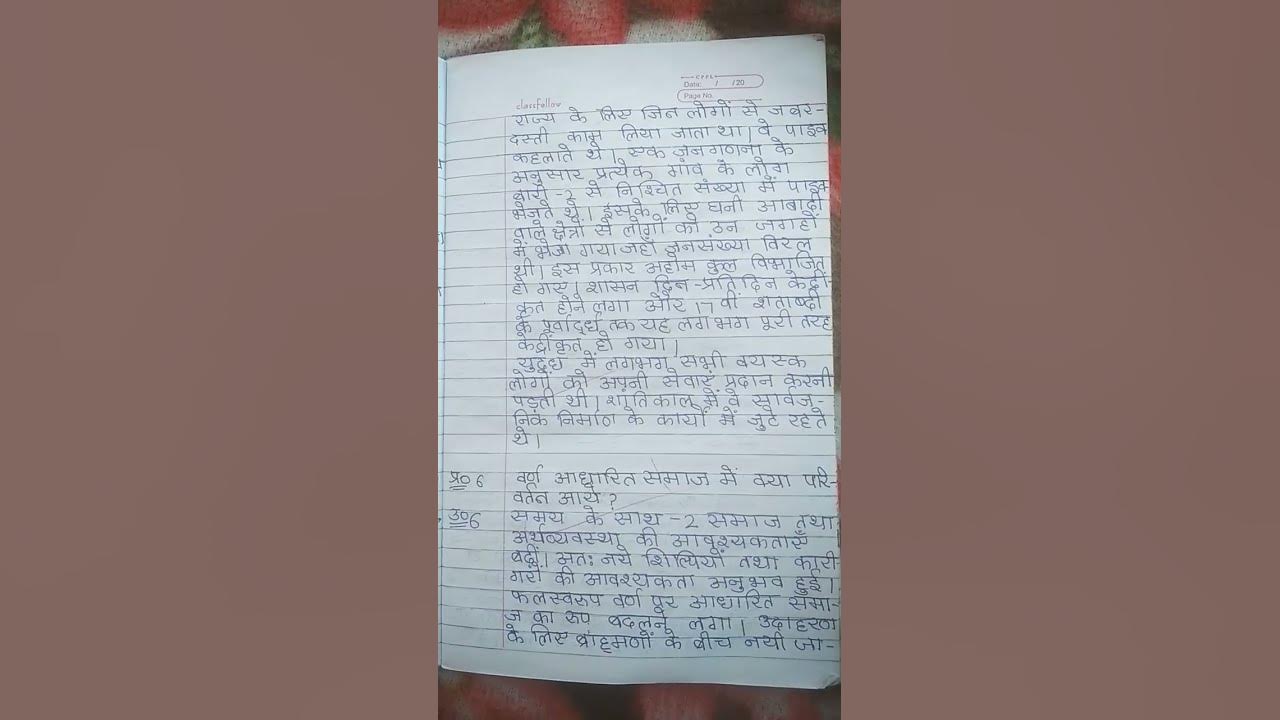 CPPL
Date: / /20
Page No.
classfellow
राज्य के लिए जिन लोगों से जबर-
दस्ती काम लिया जाता था। वे पाइक
कहलाते थे। एक जनगणना के
अनुसार प्रत्येक गांव के लोग
बारी-2 से निश्चित संख्या में पाइक
भेजते थे। इसके लिए घनी आबादी
वाले क्षेत्रों से लोगों को उन जगहों
में भेजा गया जहाँ जनसंख्या विरल
थी। इस प्रकार अहोम कुल विभाजित
हो गए। शासन दिन-प्रतिदिन केंद्री
कृत होने लगा और 17 वीं शताब्दी
के पूर्वार्द्ध तक यह लगभग पूरी तरह
केंद्रीकृत हो गया।
युद्ध में लगभग सभी वयस्क
लोगों को अपनी सेवाएँ प्रदान करनी
पड़ती थी। शांतिकाल में वे सार्वज-
निक निर्माण के कार्यों में जुटे रहते
थे।
प्र० 6 वर्ण आधारित समाज में क्या परि-
वर्तन आये?
उ० 6 समय के साथ-2 समाज तथा
अर्थव्यवस्था की आवश्यकताएँ
बढ़ीं। अतः नये शिल्पियों तथा कारी
गरों की आवश्यकता अनुभव हुई।
फलस्वरूप वर्ण पर आधारित समा-
ज का रूप बदलने लगा। उदाहरण
के लिए ब्राह्मणों के बीच नयी जा-